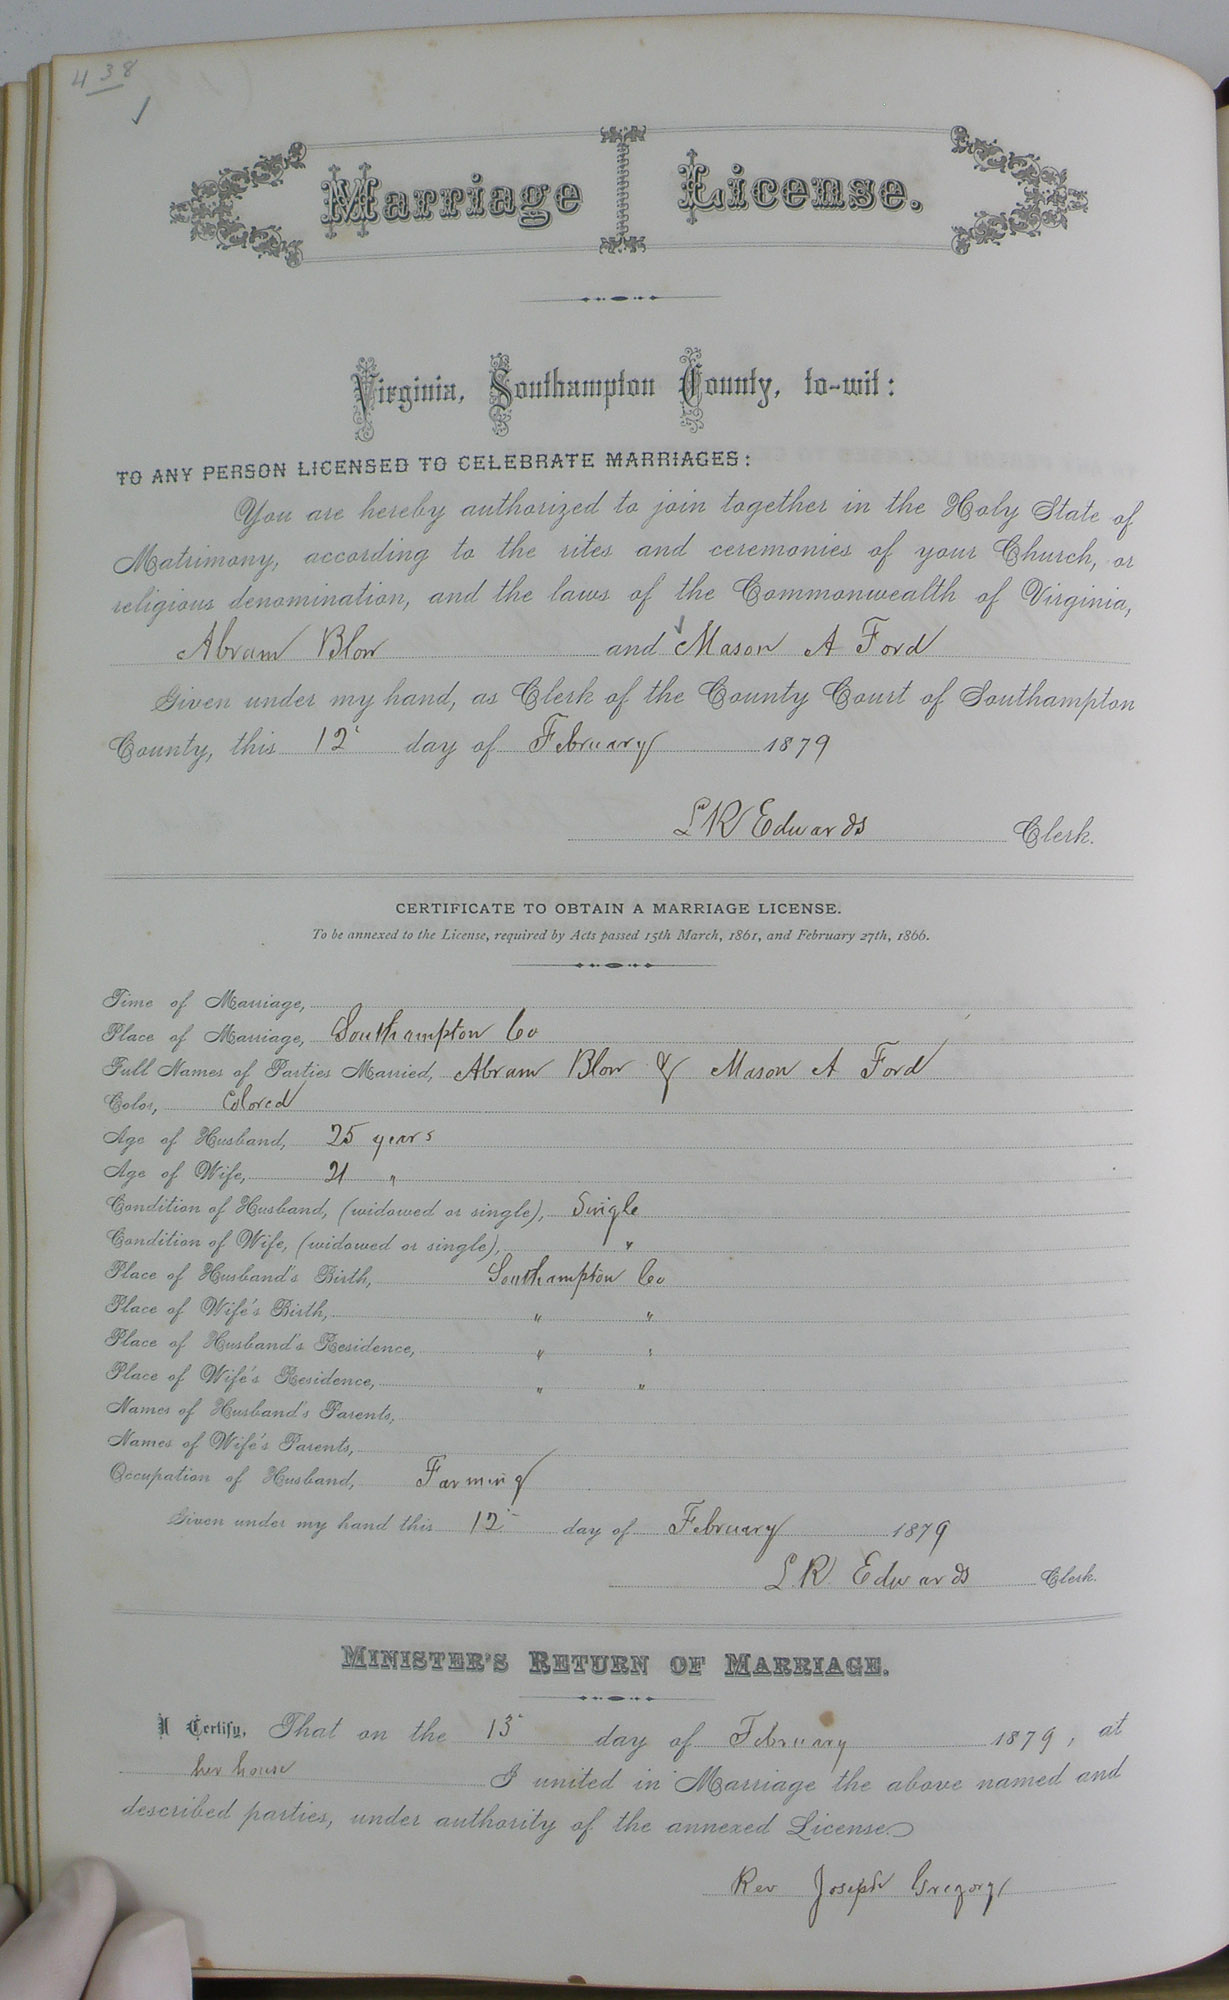 438
Marriage License.
Virginia, Southampton County, to-wit:
TO ANY PERSON LICENSED TO CELEBRATE MARRIAGES:
You are hereby authorized to join together in the Holy State of
Matrimony, according to the rites and ceremonies of your Church, or
religious denomination, and the laws of the Commonwealth of Virginia,
Abram Blow and Mason A Ford
Given under my hand, as Clerk of the County Court of Southampton
County, this 12 day of February 1879
L R Edwards Clerk.
CERTIFICATE TO OBTAIN A MARRIAGE LICENSE.
To be annexed to the License, required by Acts passed 15th March, 1861, and February 27th, 1866.
Time of Marriage,
Place of Marriage, Southampton Co
Full Names of Parties Married, Abram Blow & Mason A Ford
Color, Colored
Age of Husband, 25 years
Age of Wife, 21 "
Condition of Husband, (widowed or single), Single
Condition of Wife, (widowed or single), "
Place of Husband's Birth, Southampton Co
Place of Wife's Birth, " "
Place of Husband's Residence, " "
Place of Wife's Residence, " "
Names of Husband's Parents,
Names of Wife's Parents,
Occupation of Husband, Farming
Given under my hand this 12 day of February 1879
L. R. Edwards Clerk.
MINISTER'S RETURN OF MARRIAGE.
I Certify, That on the 13 day of February 1879, at
her house I united in Marriage the above named and
described parties, under authority of the annexed License.
Rev Joseph Gregory